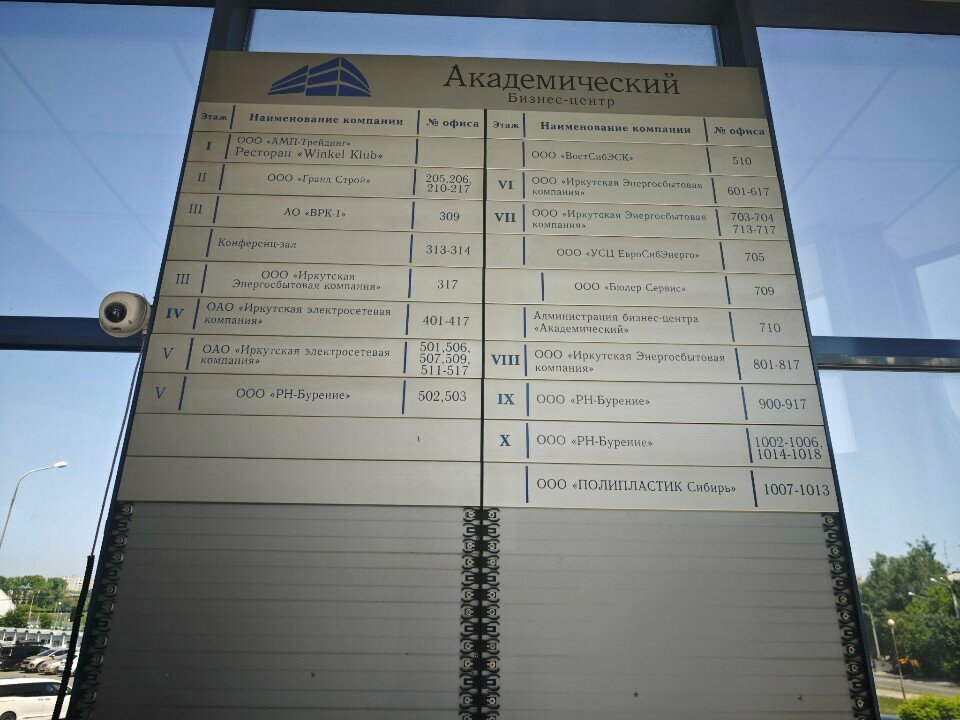 Академический
Бизнес-центр
Этаж Наименование компании № офиса
I ООО «АМП-Трейдинг»
Ресторан «Winkel Klub»
II ООО «Гранд Строй» 205,206,
210-217
III АО «ВРК-1» 309
Конференц-зал 313-314
III ООО «Иркутская
Энергосбытовая компания» 317
IV ОАО «Иркутская электросетевая
компания» 401-417
V ОАО «Иркутская электросетевая
компания» 501,506,
507,509,
511-517
V ООО «РН-Бурение» 502,503
Этаж Наименование компании № офиса
ООО «ВостСибЭСК» 510
VI ООО «Иркутская Энергосбытовая
компания» 601-617
VII ООО «Иркутская Энергосбытовая
компания» 703-704
713-717
ООО «УСЦ ЕвроСибЭнерго» 705
ООО «Бюлер Сервис» 709
Администрация бизнес-центра
«Академический» 710
VIII ООО «Иркутская Энергосбытовая
компания» 801-817
IX ООО «РН-Бурение» 900-917
X ООО «РН-Бурение» 1002-1006,
1014-1018
ООО «ПОЛИПЛАСТИК Сибирь» 1007-1013